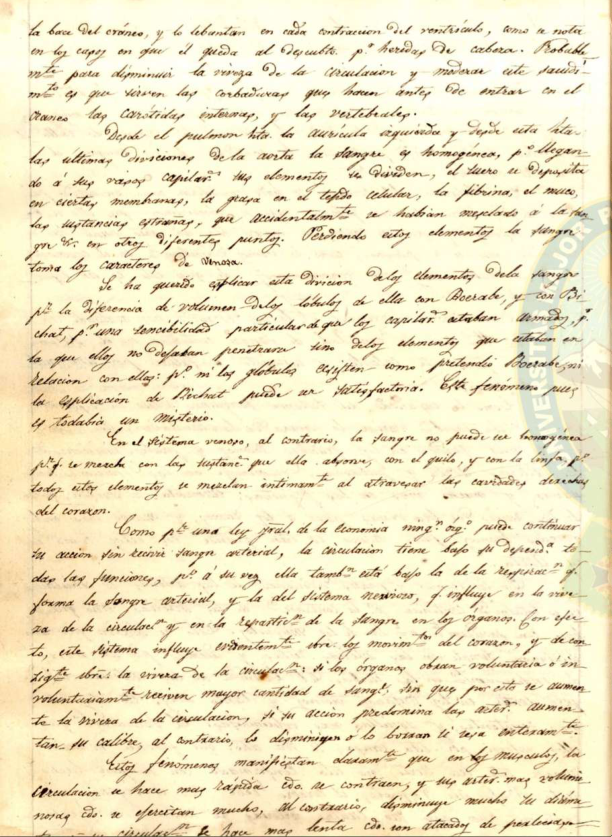 la bace del cráneo, y lo lebantan en cada contraccion del ventrículo, como se nota
en los casos en que él queda al descubto. pr. heridas de cabeza. Probable
mte. para disminuir la viveza de la circulacion y moderar este sacudi
mto. es que sirven las corbaduras que hacen antes de entrar en el
craneo las carótidas internas, y las vertebrales.
Desde el pulmon hta. la auricula izquierda y desde esta hta.
las últimas divisiones de la aorta la sangre es homogénea, po. llegan
do á sus vasos capilars. sus elementos se dividen, el suero se deposita
en ciertas membranas, la grasa en el tejido celular, la fibrina, el muco,
las sustancias estrañas, que accidentalmte. se habian mezclado á la san
gre &c. en otros diferentes puntos. Perdiendo estos elementos la sangre
toma los caracteres de venosa.
Se ha querido esplicar esta division delos elementos dela sangre
pr. la diferencia de volumen delos lóbulos de ella con Boerabe, y con Bi
chat, pr. una sencibilidad particular de qe. los capilars. estaban armados, pr.
la que ellos no dejaban penetrara sino delos elementos que estaban en
relacion con ellos: po. ni los glóbulos ecsisten como pretendio Boerabe, ni
la esplicación de Bichat puede ser satisfactoria. Este fenómeno pues
es todabia un misterio.
En el sistema venoso, al contrario, la sangre no puede ser homogénea
pr. q. se mezcla con las sustancs. que ella absorve, con el quilo, y con la linfa, po.
todos estos elementos se mezclan intimamte. al atravesar las cavidades derechas
del corazon.
Como pr. una ley gral. de la economia ningn. orgo. puede continuar
su accion sin recivir sangre arterial, la circulacion tiene bajo su dependa. to
das las funciones, po. á su vez ella tambn. está bajo la de la respiracn. q.
forma la sangre arterial, y la del sistema nervioso, q. influye en la vive
za de la circulacn. y en la reparticn. de la sangre en los órganos. Con efec
to, este sistema influye evidentemte. sbre. los movimtos. del corazon, y de con
sigte. sbre. la viveza de la circulacn.: si los órganos obran voluntaria ó in
voluntariamte. reciven mayor cantidad de sange. sin que por esto se aumen
te la viveza de la circulacion, si su acción predomina las arters. aumen
tan su calibre, al contrario, lo disminuyen o lo borran si cesa enteramte.
Estos fenómenos manifiestan claramte. que en los musculos, la
circulacion se hace mas rápida cdo. se contraen, y sus arters. mas volumi
nosas cdo. se ejercitan mucho, al contrario, disminuye mucho su diáme
circulacn. se hace mas lenta cdo. son atacados de